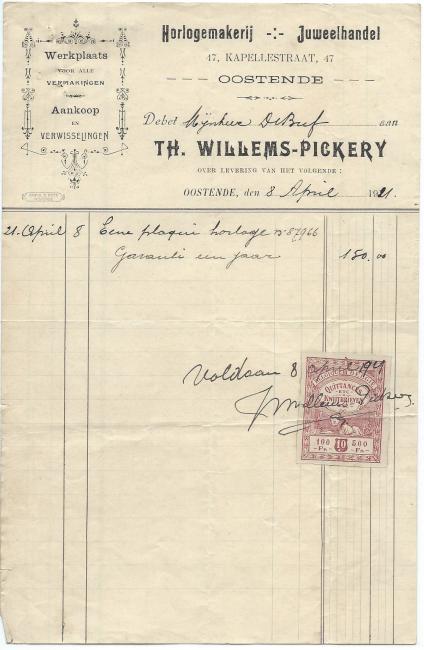 Horlogemakerij -:- Juweelhandel
47, KAPELLESTRAAT, 47
OOSTENDE
Werkplaats
VOOR ALLE
VERMAKINGEN
Aankoop
EN
VERWISSELINGEN
Debet Mijnheer De Bref aan
TH. WILLEMS-PICKERY
OVER LEVERING VAN HET VOLGENDE :
OOSTENDE, den 8 April 1921.
21. April 8 Eene plaqué horloge N° 87966
Garanti een jaar 150.00
Voldaan 8 april 1921
QUITTANCES
ETC
KWIJTBRIEVEN
100 10 500
Fs Fs